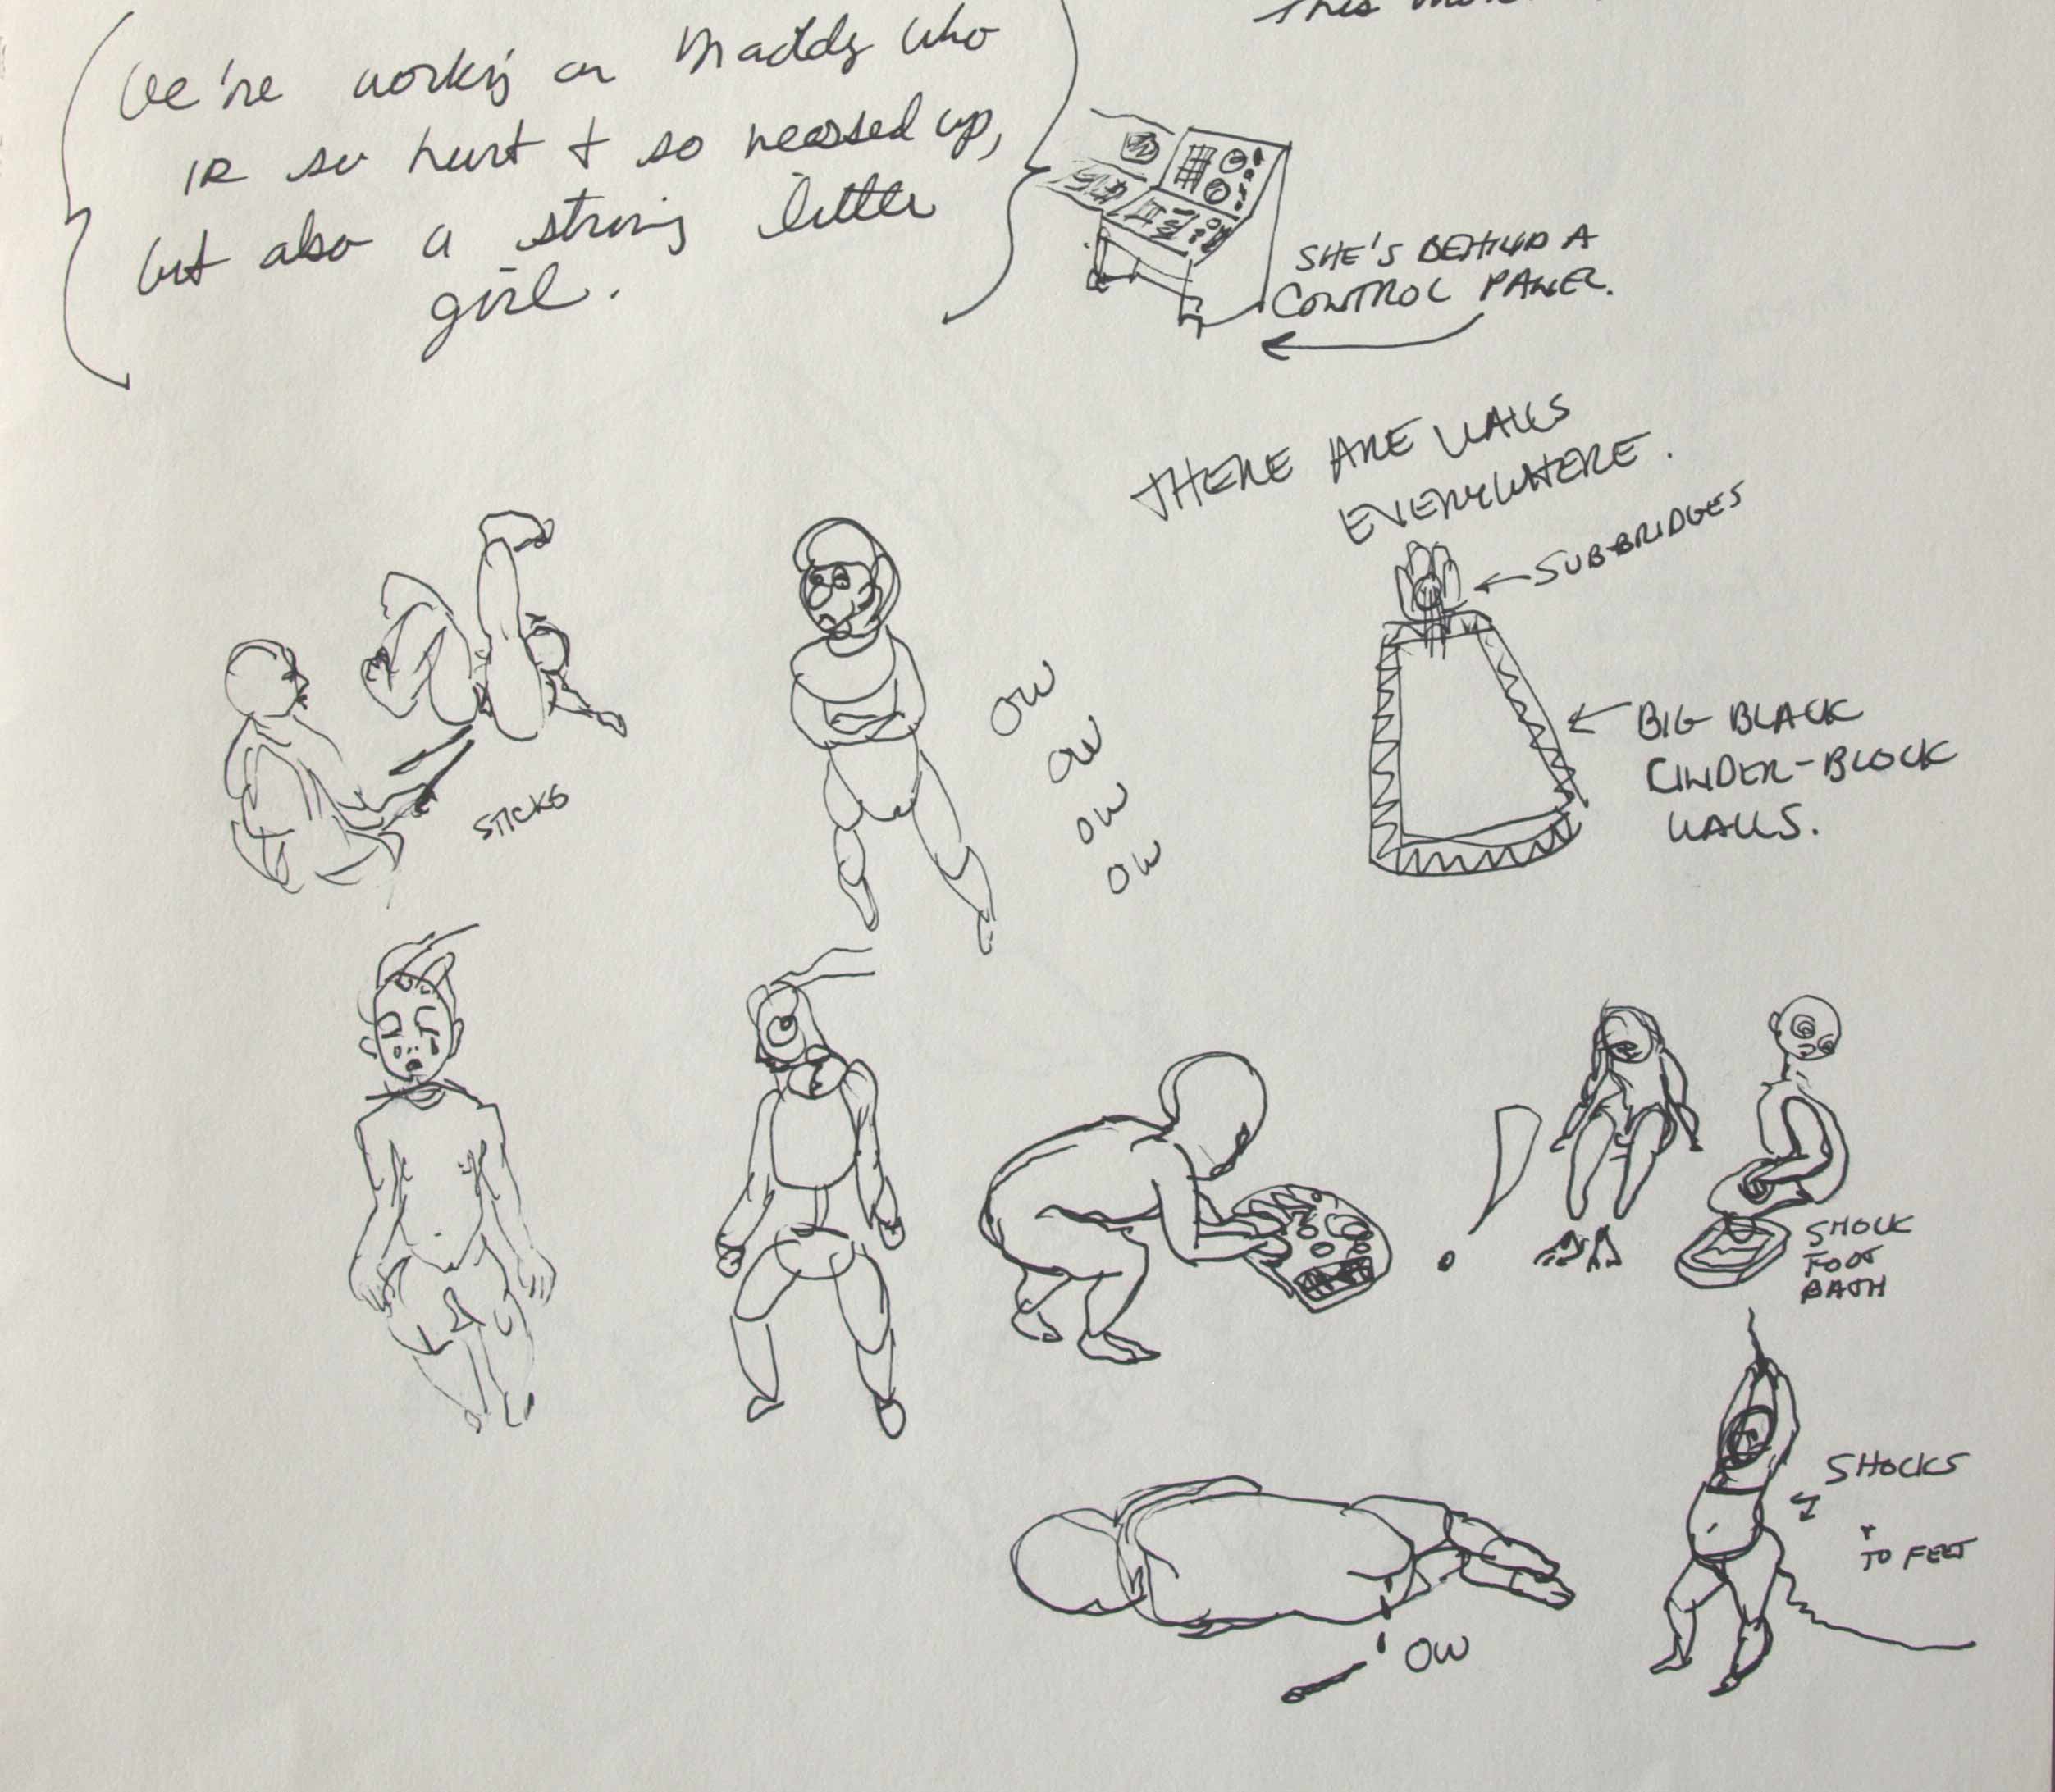 This
We're working on Maddy who
IR so hurt + so messed up,
but also a strong little
girl.
SHE'S BEHIND A
CONTROL PANEL.
THERE ARE WALLS
EVERYWHERE.
SUB-BRIDGES
BIG BLACK
CINDER-BLOCK
WALLS.
STICKS
OW
OW
OW
OW
SHOCK
FOOT
BATH
SHOCKS
TO FEET
OW